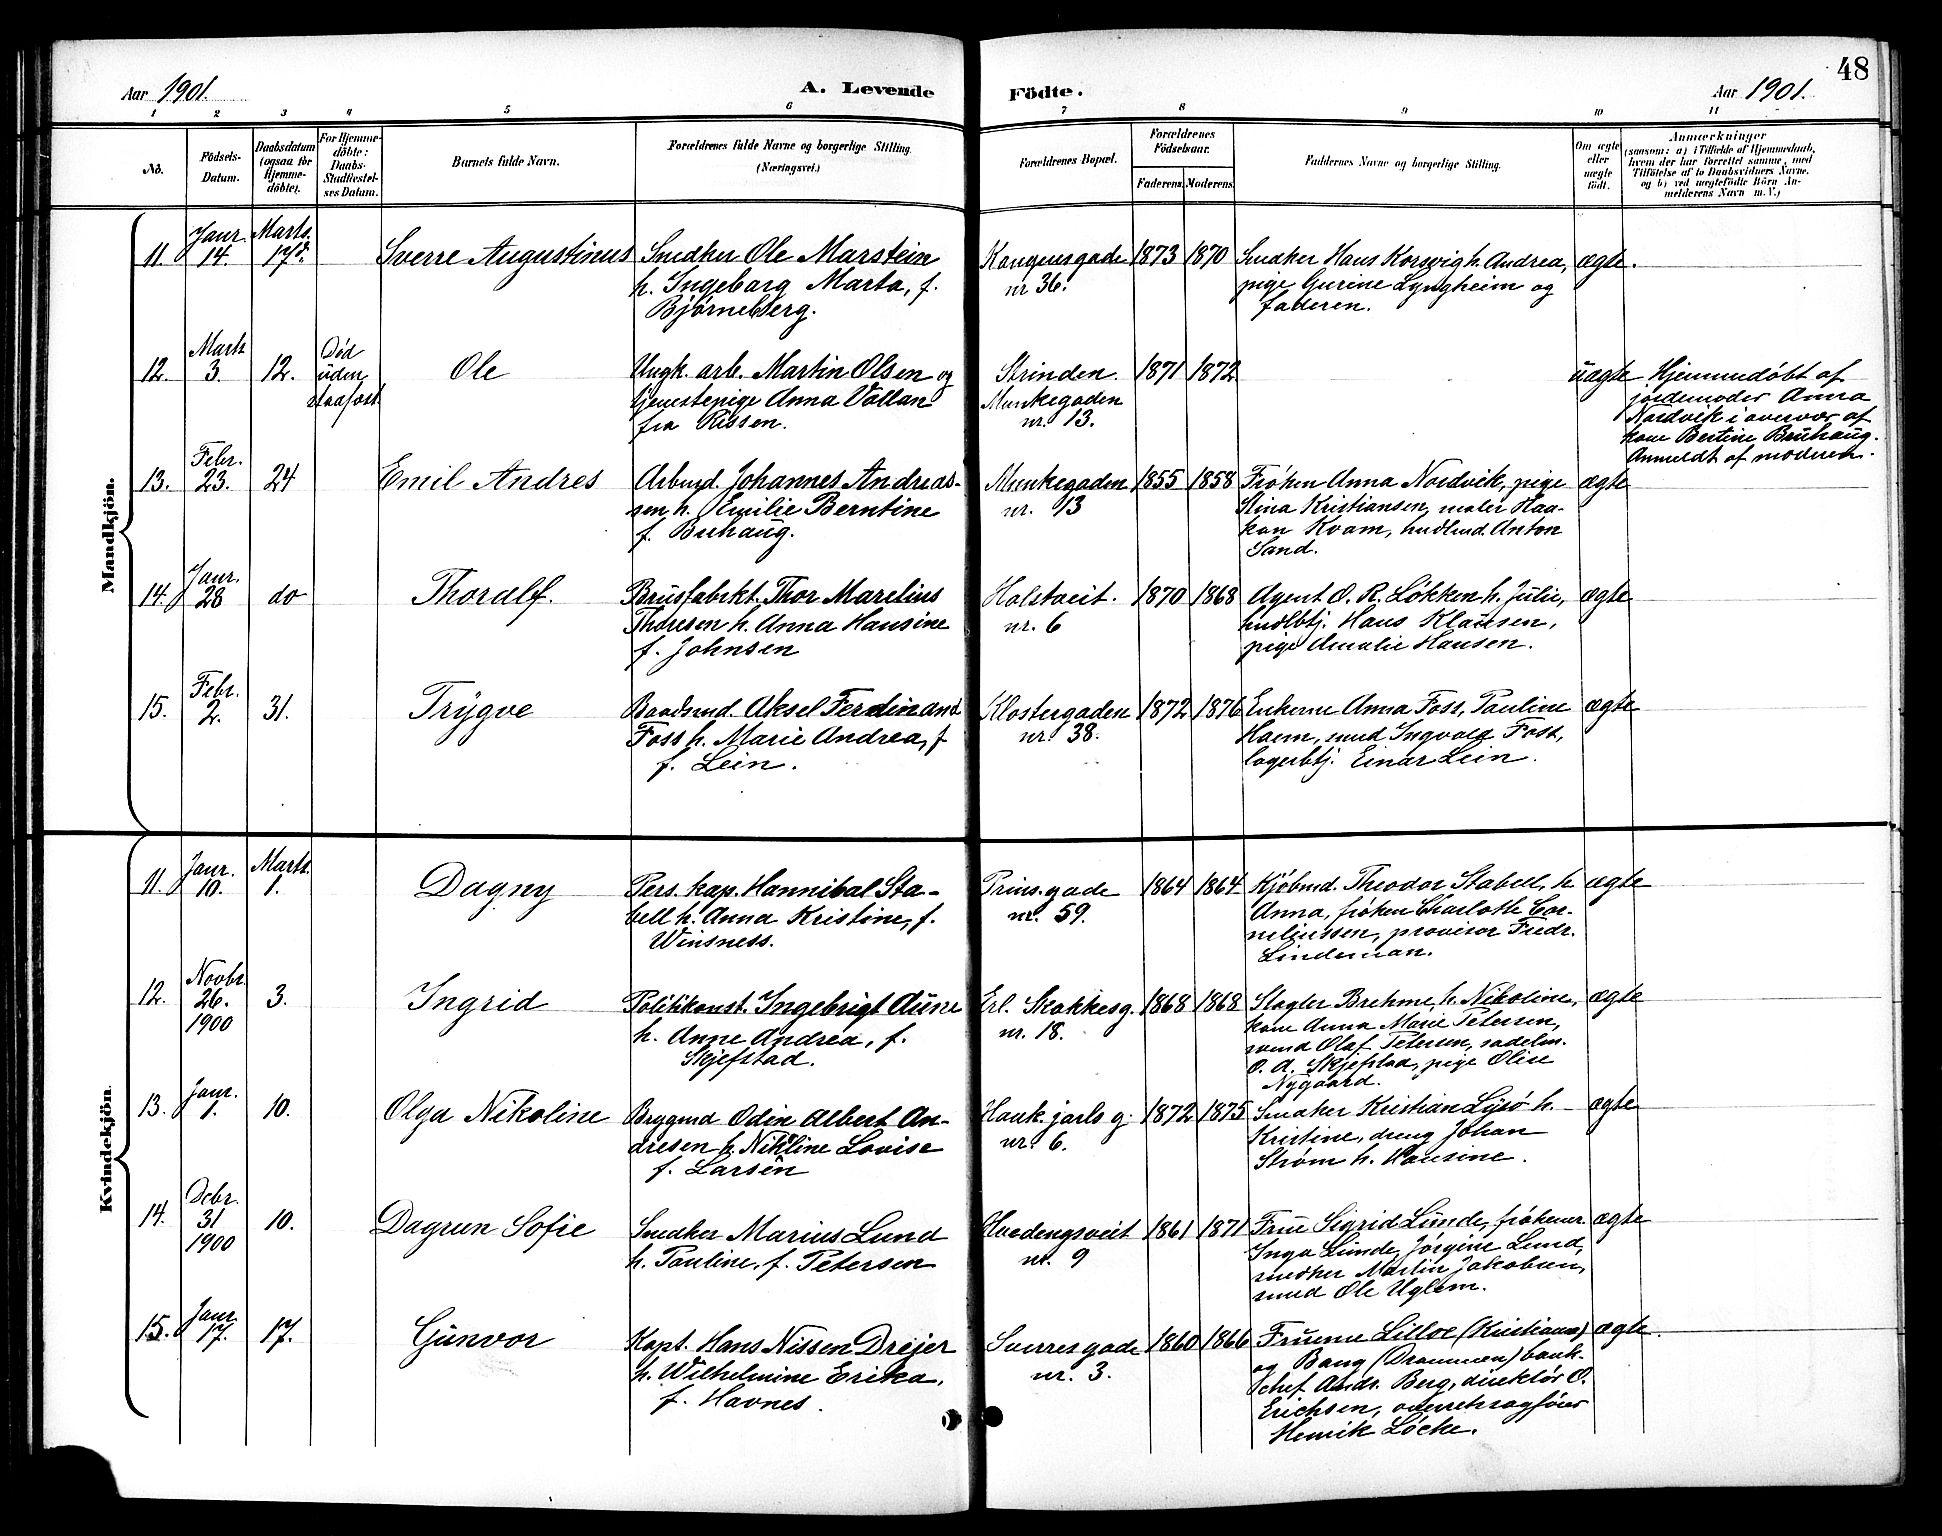 48
Aar 1901. A. Levende Födte. Aar 1901.
1 2 3 4 5 6 7 8 9 10 11
No.
Födsels-
Datum.
Daabsdatum
(ogsaa for
Hjemme-
döbte).
For Hjemme-
döbte:
Daabs-
Stadfæstel-
ses Datum.
Barnets fulde Navn.
Forældrenes fulde Navne og borgerlige Stilling.
(Næringsvei.)
Forældrenes Bopæl.
Forældrenes
Födselsaar.
Faderens. Moderens.
Faddernes Navne og borgerlige Stilling.
Om ægte
eller
uægte
født.
Anmærkninger
(saasom: a) i Tilfælde af Hjemmedaab,
hvem der har forrettet samme, med
Tilföielse af to Daabsvidners Navne.
og b) ved uægtefödte Börn An-
melderens Navn m. V.)
Mandkjön.
11. Janr. 14. Marts. 17d. Sverre Augustinus
Snedker Ole Marstein
h. Ingeborg Marta, f.
Bjørneberg.
Kongensgade
nr 36.
1873 1870
Snedker Hans Korsvig h. Andrea,
pige Gurine Lyngheim og
faderen.
ægte.
12. Marts 3. 12. Død
uden
stadfæst
Ole
Ungk. arb. Martin Olsen og
tjenestepige Anna Vollan
fra Rissen.
Strinden.
Munkegaden
nr. 13.
1871 1872
uægte
Hjemmedøbt af
jordemoder Anna
Nordvik i overvær af
kone Bertine Bruhaug.
Anmeldt af moderen.
13. Febr. 23. 24 Emil Andres
Arbmd. Johannes Andreas-
sen h. Emilie Berntine
f. Buhaug.
Munkegaden
nr. 13
1855 1858
Frøken Anna Nordvik, pige
Stina Kristiansen, maler Haa-
kon Kvam, hndlmd. Anton
Sand.
ægte
14. Janr. 28 do Thoralf.
Brusfabrkt. Thor Marelius
Thoresen h. Anna Hansine
f. Johnsen
Holstveit.
nr. 6
1870 1868
Agent O. R. Løkken h. Julie,
hndlbtj. Hans Klausen,
pige Amalie Hansen.
ægte
15. Febr. 2. 31. Trygve
Baadsmd. Aksel Ferdinand
Foss h. Marie Andrea, f
f. Lein.
Klostergaden
nr. 38.
1872 1876
Enkerne Anna Foss, Pauline
Haem, smed Ingvald Foss,
lagerbtj. Einar Lein.
ægte
Kvindekjön
11. Janr. 10. Marts. 1. Dagny
Pers. kap. Hannibal Sta-
bell h. Anna Kristine, f.
Winsness.
Prins. gade
nr. 59.
1864 1864
Kjøbmd. Theodor Stabell, h.
Anna, frøken Charlotte Cor-
neliussen, provisor Fredr.
Lindeman.
ægte
12. Novbr. 26. 1900 3. Ingrid
Politikonst. Ingebrigt Aune
h. Anne Andrea, f.
Skjefstad.
Erl. Skakkesg.
nr. 18.
1868 1868
Slagter Brehme, h. Nikoline,
kone Anna Marie Petersen,
svend Olaf Petersen, sadelm.
O. A. Skjefstad, pige Oline
Nygaard.
ægte
13. Janr. 1. 10. Olga Nikoline
Brygmd Odin Albert An-
dresen h. Nikoline Lovise
f. Larsen
Hauk. jarls g.
nr. 6.
1872 1875
Snedker Kristian Lysø h.
Kristine, dreng Johan
Strøm h. Hansine.
ægte
14. Debr. 31 1900 10. Dagrun Sofie
Snedker Marius Lund
h. Pauline, f. Petersen
Hvedingsveit
nr. 9
1861 1871
Frue Sigrid Lunde, frøkener
Inga Lunde, Jørgine Lund,
snedker Martin Jakobsen,
smed Ole Uglem.
ægte
15. Janr. 17. 17. Gunvor
Kapt. Hans Nissen Drejer
h. Wilhelmine Erika,
f. Havnes.
Sverresgade
nr. 3.
1860 1866
Fruerne Lilloe (Kristiania)
og Bang (Drammen) bank-
chef Andr. Berg, direktør O.
Erichsen, overretssagfører
Henrik Løcke.
ægte.